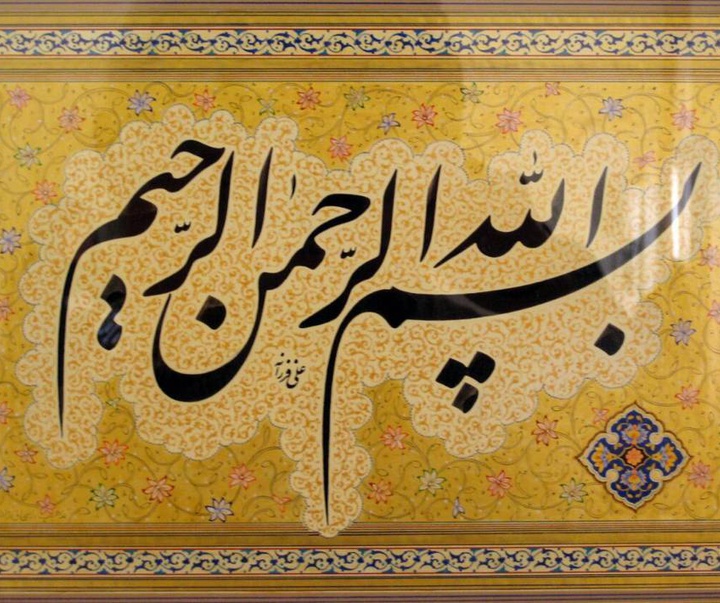 بسم الله الرحمن الرحیم
علی فرزانه